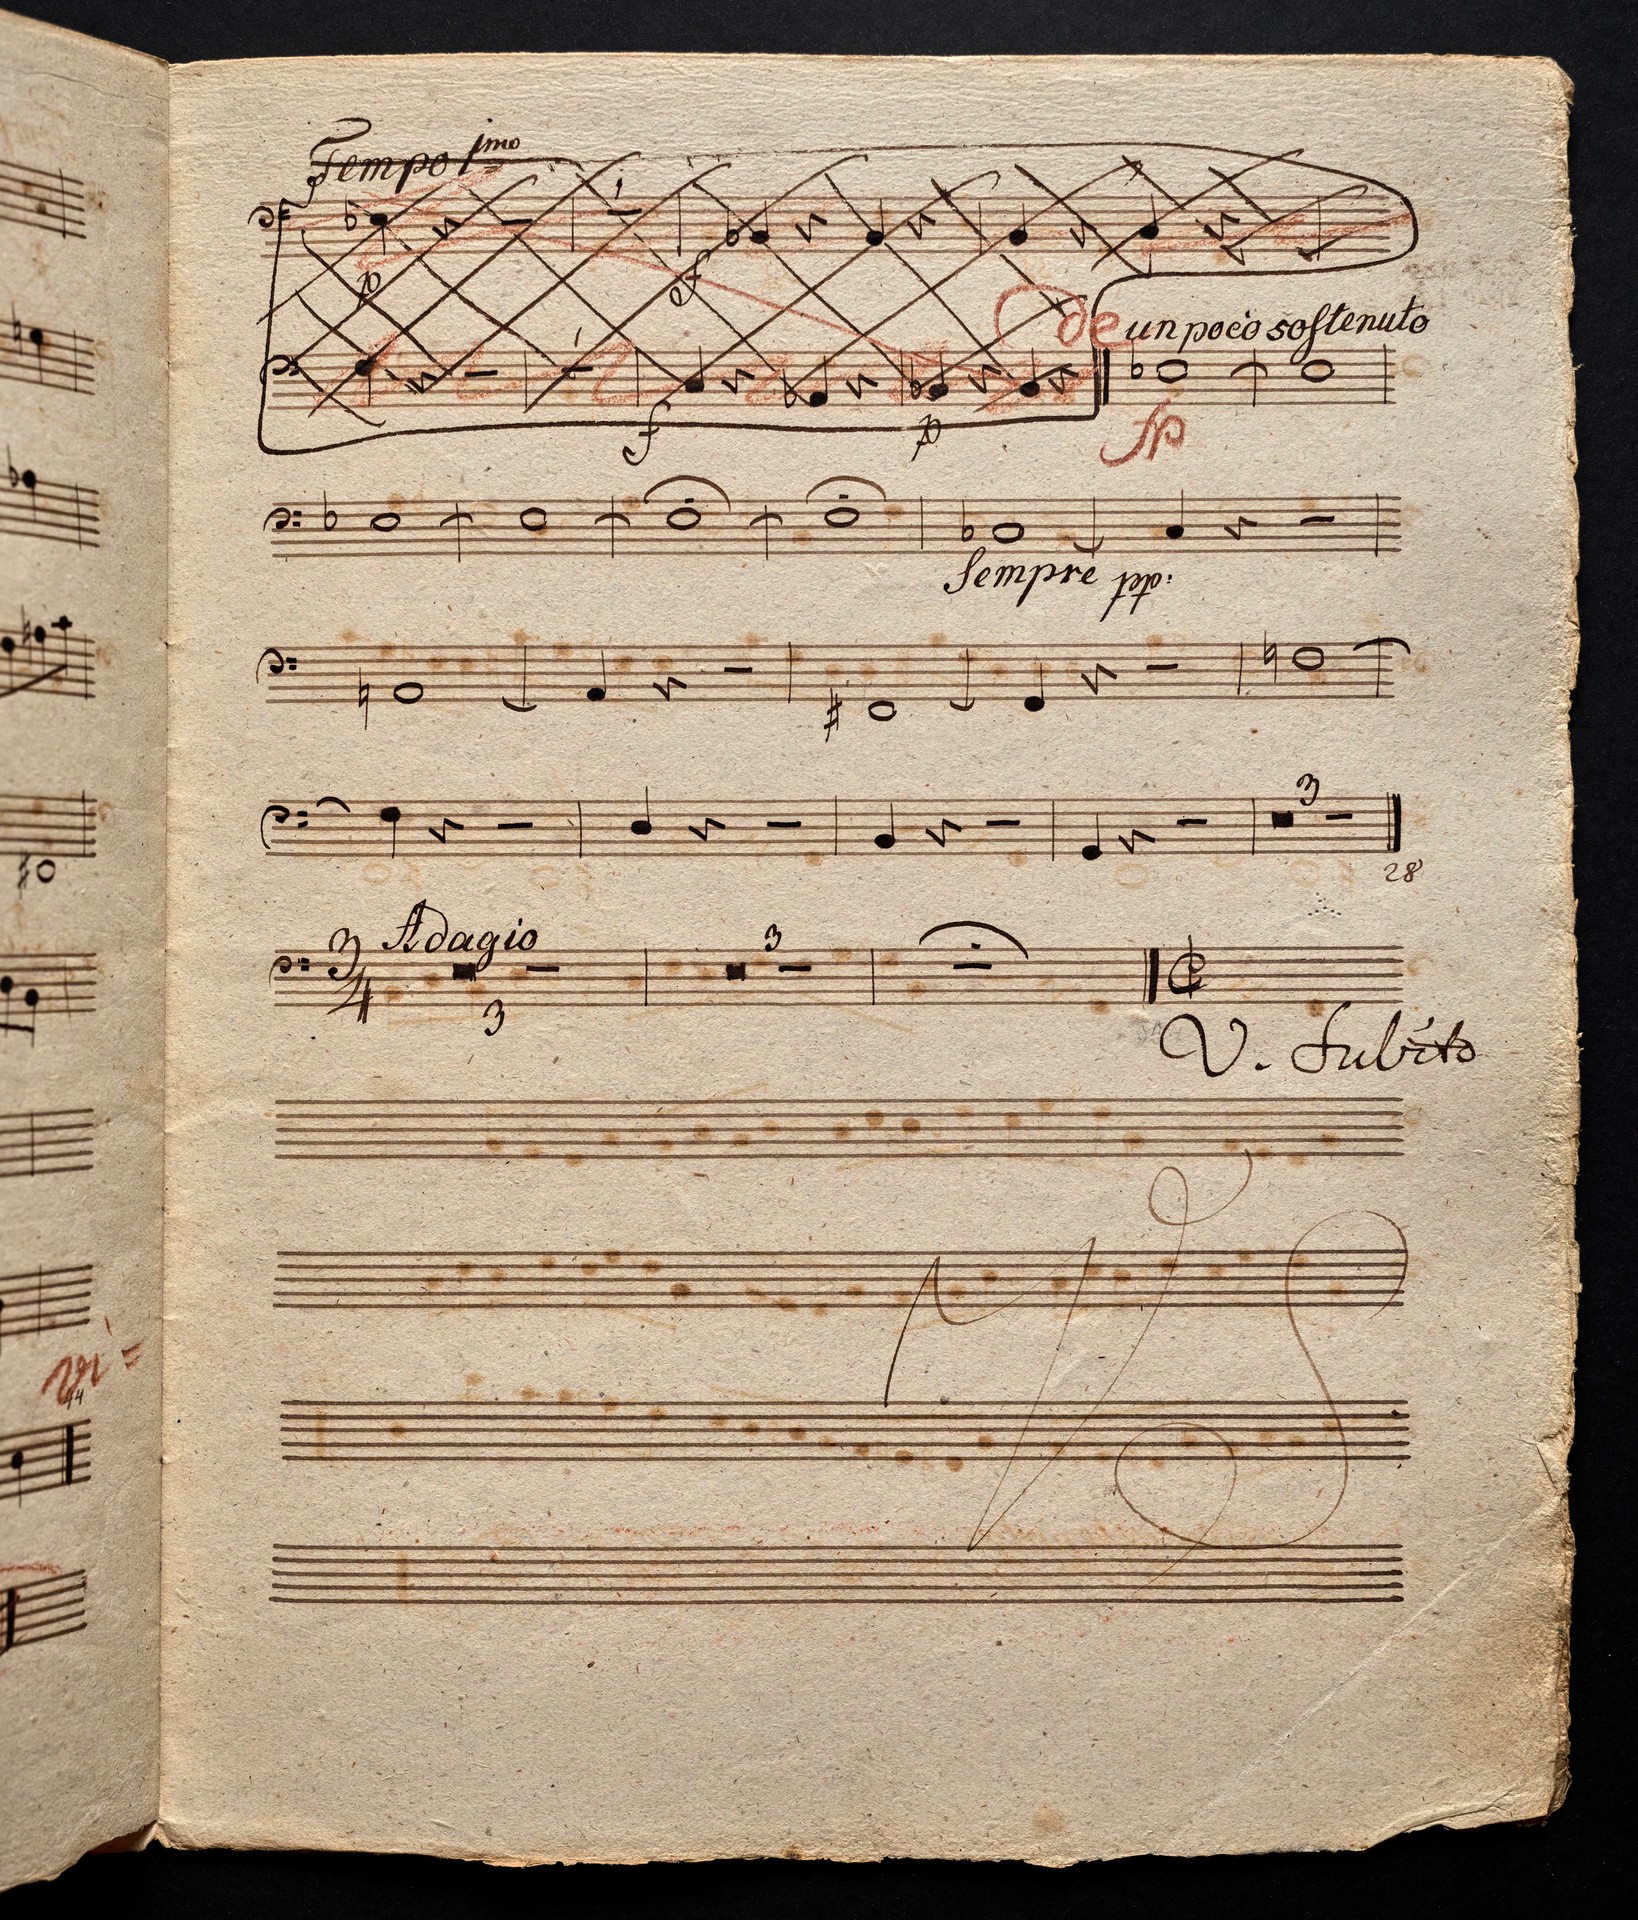 Tempo 1mo
p
f
de un poco sostenuto
f
p
fp
Sempre pp:
3
28
3/4 Adagio
3
3
V. Subito
vi=
44
VS